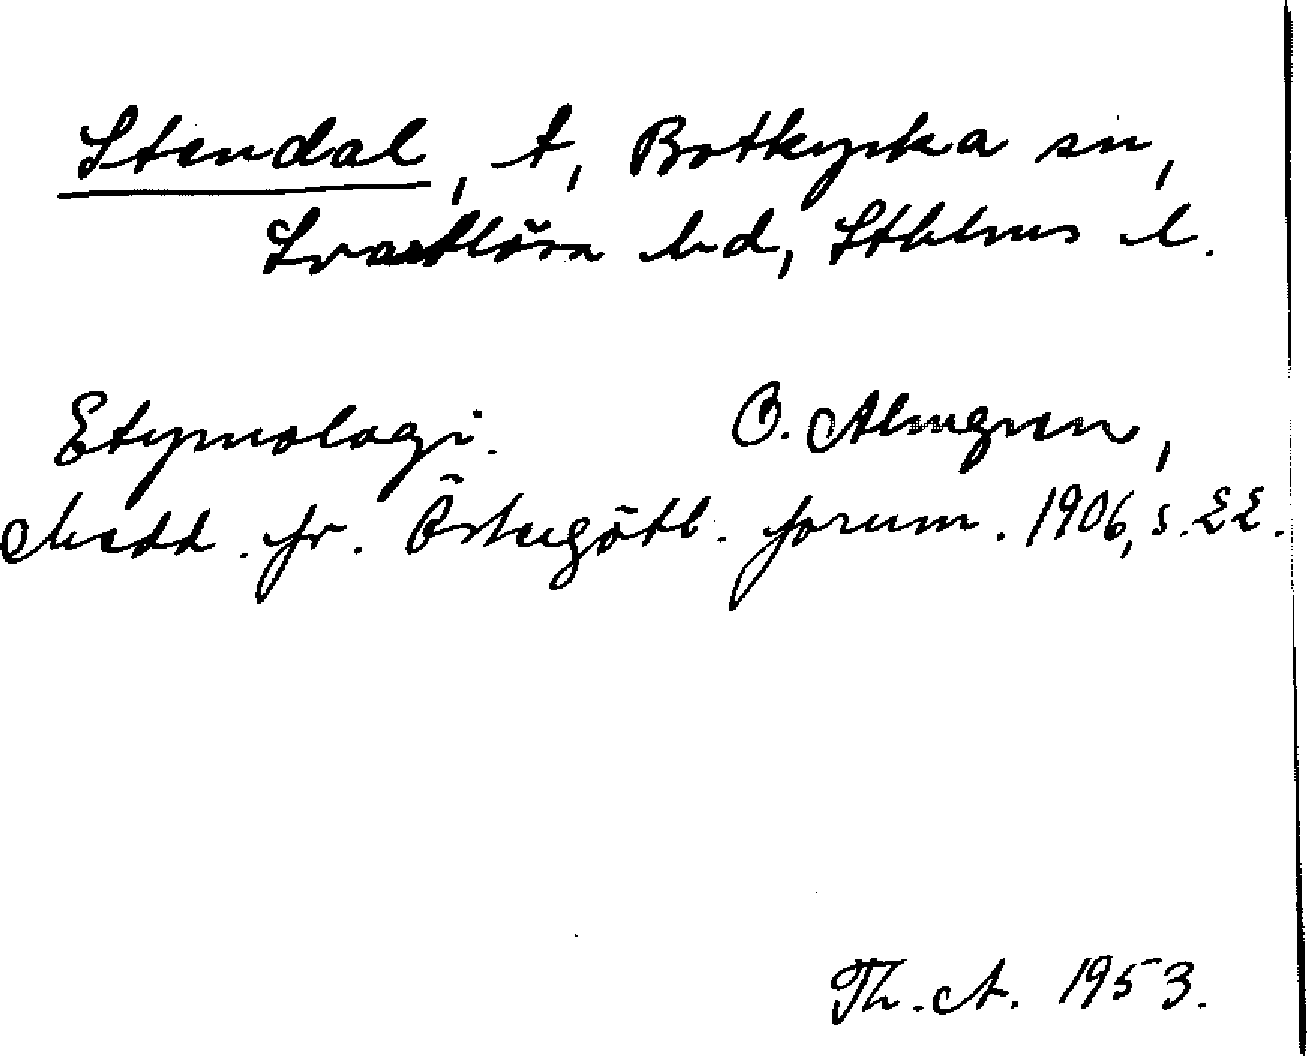 Stendal, t, Botkyrka sn,
Svartlösa hd, Sthlms l.
Etymologi. O. Almgren,
Medd. fr. Östergötl. fornm. 1906, s. 22.
Th. A. 1953.